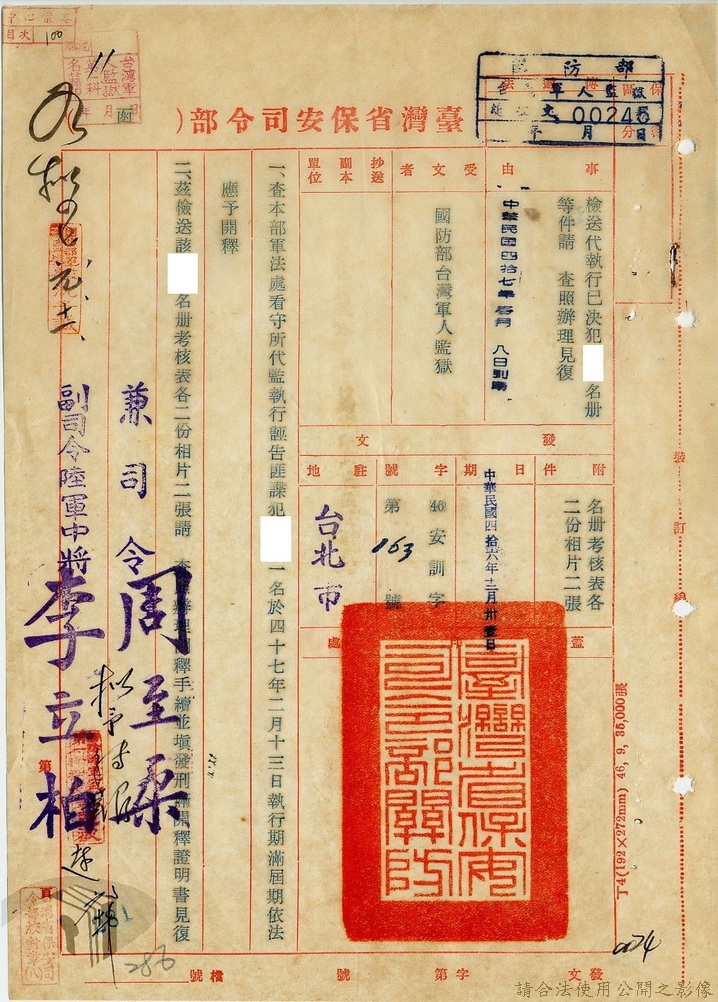 臺灣省保安司令部( )函
國防部
台灣軍人監獄
00246
月 日
事由
檢送代執行已決犯 名册
等件請 查照辦理見復
中華民國四拾七年 壹月 八日到
受文者
國防部台灣軍人監獄
抄送副本單位
附件
名册考核表各
二份相片二張
發文
日期
中華民國四拾六年十二月卅壹日
字號
46安訓字
第 163 號
駐地
台北市
蓋印處
臺灣省保安司令部關防
一、查本部軍法處看守所代監執行誣告匪諜犯 一名於四十七年二月十三日執行期滿屆期依法
應予開釋
二、茲檢送該 名册考核表各二份相片二張請 查照辦理開釋手續並塡發刑滿開釋證明書見復
兼司令 周至柔
副司令陸軍中將 李立柏
裝訂線
丁4(192×272mm) 46, 9, 35,000張
0074
發文 字第 號 檔號
286
281
目次 100
11
第 頁
請合法使用公開之影像